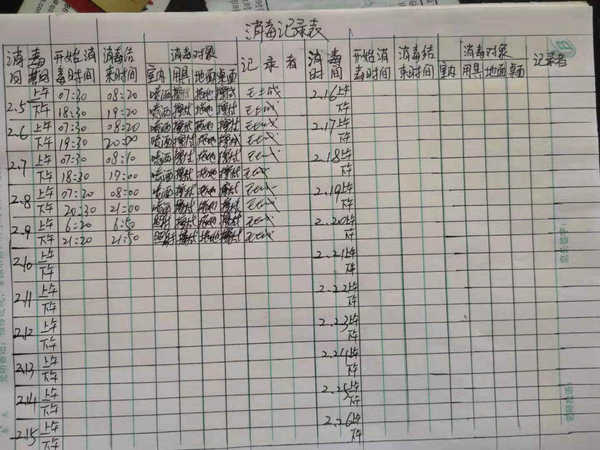 消毒记录表
消毒时间 开始消毒时间 消毒结束时间 消毒对象 记录者 消毒时间 开始消毒时间 消毒结束时间 消毒对象 记录者
室内 用具 地面 桌面 室内 用具 地面 桌面
2.5 上午 07:30 08:20 喷洒 擦拭 拖地 擦拭 2.16 上午
下午 18:30 19:20 喷洒 擦拭 拖地 擦拭 下午
2.6 上午 07:30 08:20 喷洒 擦拭 拖地 擦拭 2.17 上午
下午 19:30 20:00 喷洒 擦拭 拖地 擦拭 下午
2.7 上午 07:30 08:10 喷洒 擦拭 拖地 擦拭 2.18 上午
下午 18:30 19:00 喷洒 擦拭 拖地 擦拭 下午
2.8 上午 07:20 08:00 喷洒 擦拭 拖地 擦拭 2.19 上午
下午 20:30 21:00 喷洒 擦拭 拖地 擦拭 下午
2.9 上午 6:20 6:50 擦拭 拖地 擦拭 2.20 上午
下午 21:20 21:50 擦拭 拖地 擦拭 下午
2.10 上午 2.21 上午
下午 下午
2.11 上午 2.22 上午
下午 下午
2.12 上午 2.23 上午
下午 下午
2.13 上午 2.24 上午
下午 下午
2.14 上午 2.25 上午
下午 下午
2.15 上午 2.26 上午
下午 下午